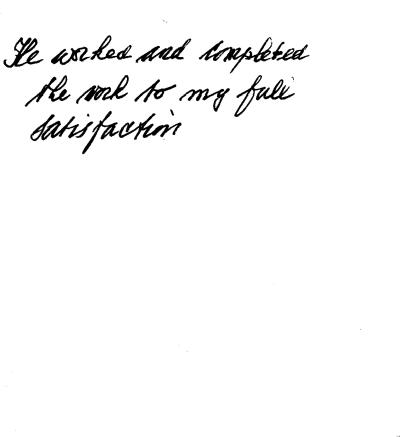 He worked and completed
the work to my full
satisfaction